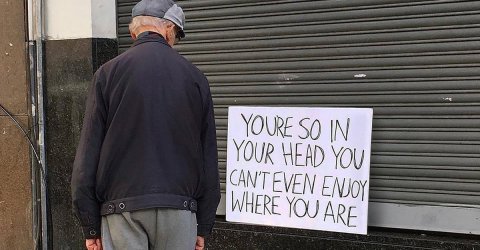 YOURE SO IN
YOUR HEAD YOU
CAN'T EVEN ENJOY
WHERE YOU ARE